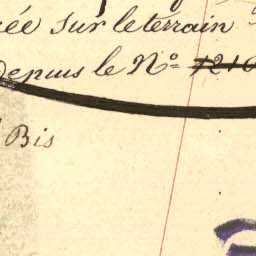 sur le terrain
depuis le N°
Bis